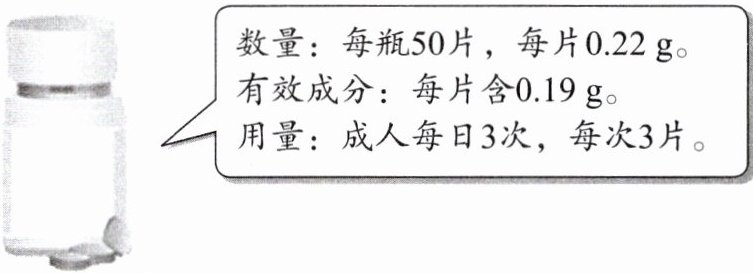 数量：每瓶50片，每片0.22 g。
有效成分：每片含0.19 g。
用量：成人每日3次，每次3片。